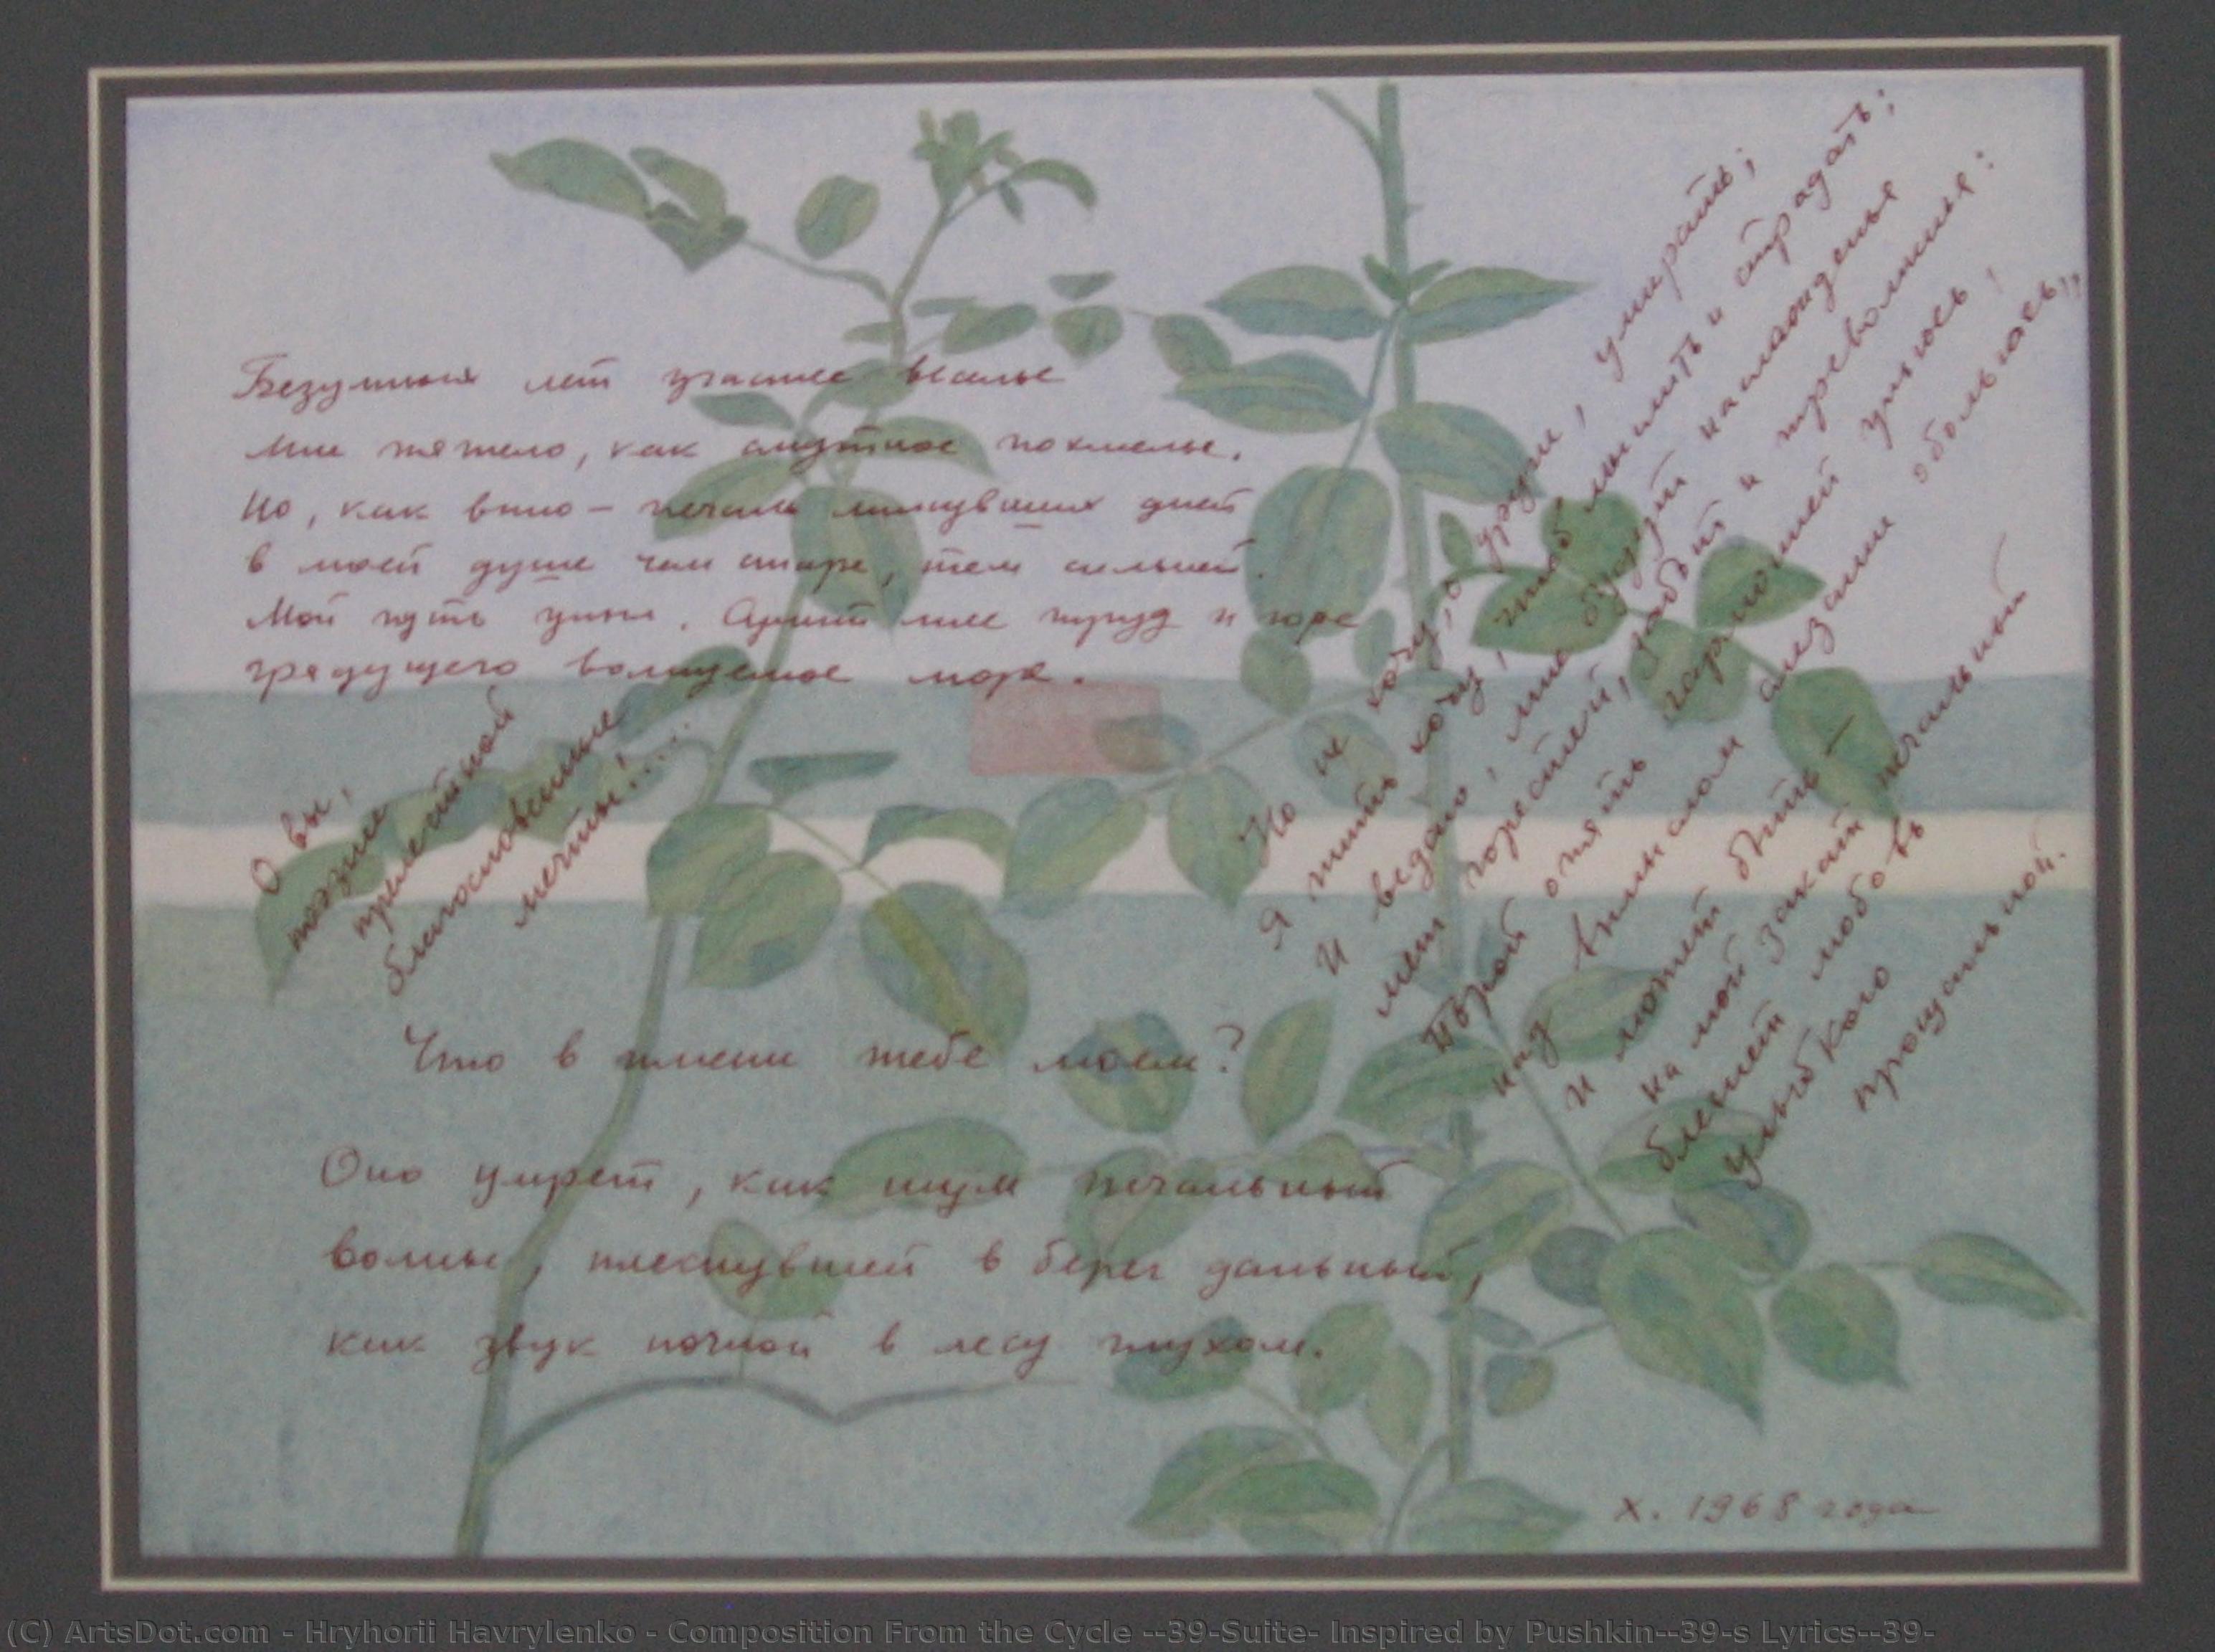 Безумных лет угасшее веселье
мне тяжело, как смутное похмелье.
Но, как вино — печаль минувших дней
в моей душе чем старе, тем сильней.
Мой путь уныл. Сулит мне труд и горе
грядущего волнуемое море.
Но не хочу, о други, умирать;
Я жить хочу, чтоб мыслить и страдать;
И ведаю, мне будут наслажденья
меж горестей, забот и треволненья:
Порой опять гармонией упьюсь,
над вымыслом слезами обольюсь,
и может быть —
на мой закат печальный
блеснет любовь
улыбкою
прощальной.
О вы,
поэзии
прелестной
благословенные
мечты!....
Что в имени тебе моем?
Оно умрет, как шум печальный
волны, плеснувшей в берег дальный,
как звук ночной в лесу глухом.
X. 1968 года
(C) ArtsDot.com - Hryhorii Havrylenko - Composition From the Cycle --39-Suite- Inspired by Pushkin--39-s Lyrics--39-